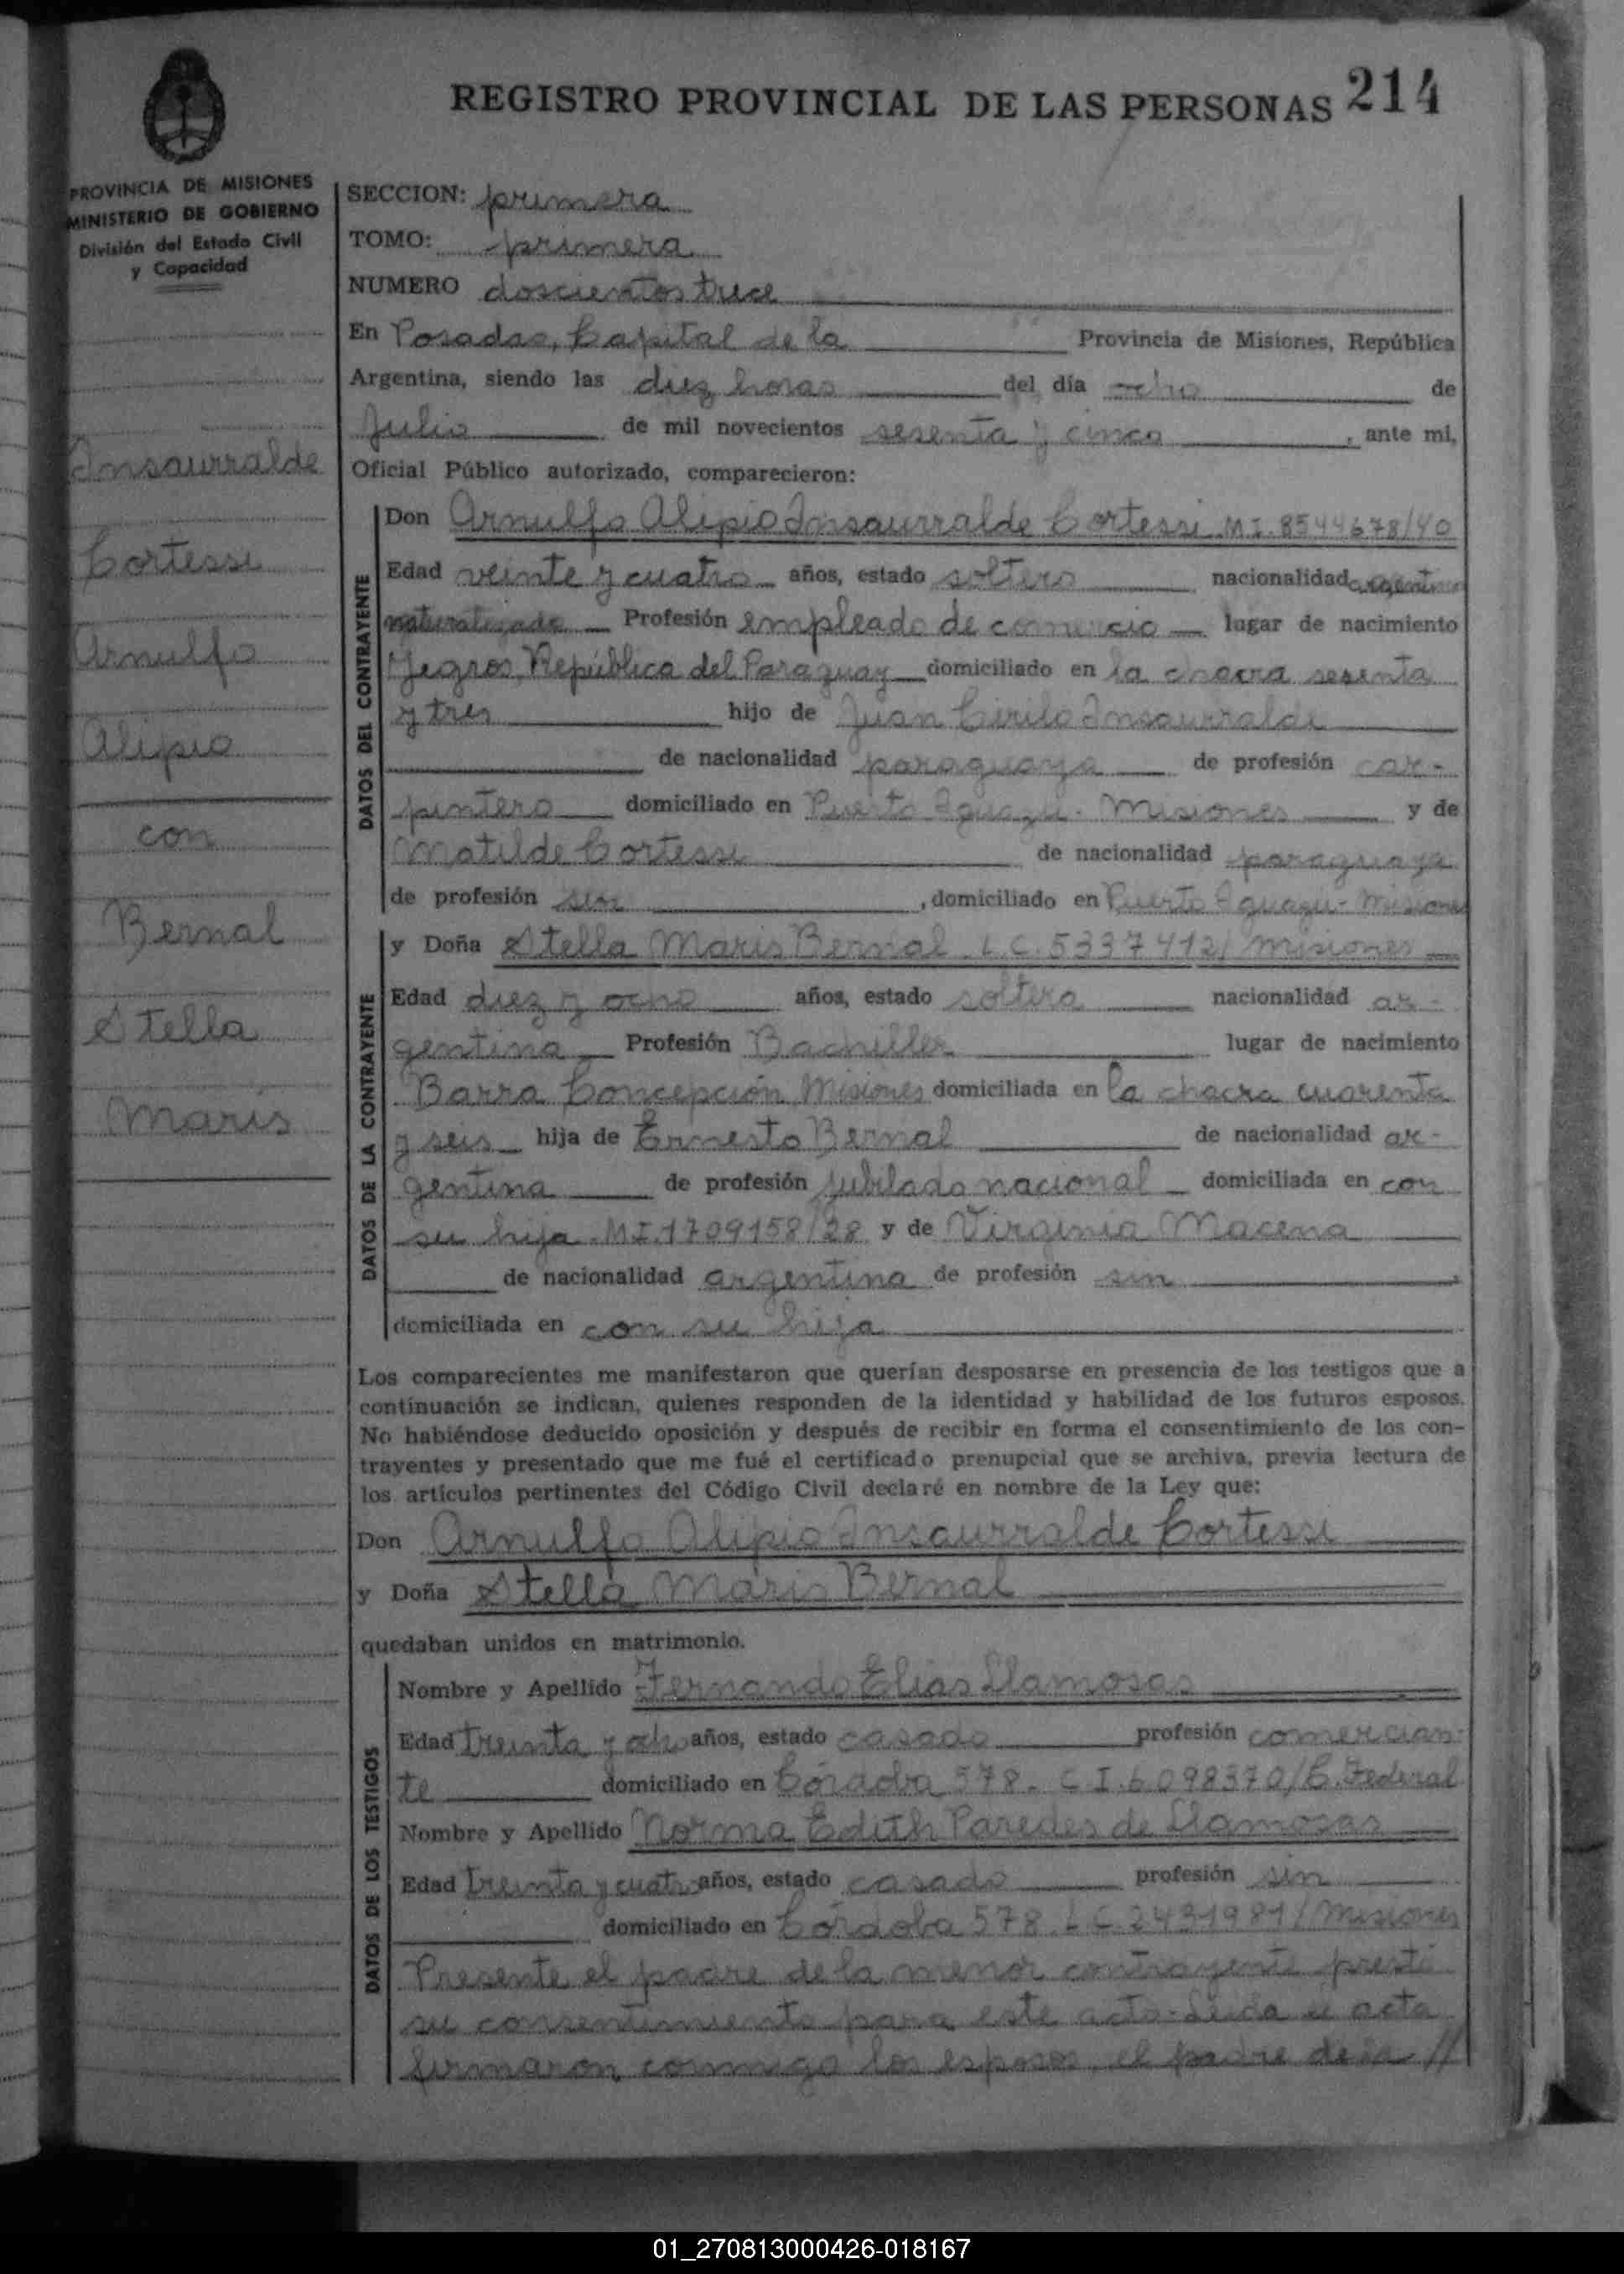 REGISTRO PROVINCIAL DE LAS PERSONAS 214
PROVINCIA DE MISIONES
MINISTERIO DE GOBIERNO
División del Estado Civil
y Capacidad
Insaurralde
Cortessi
Arnulfo
Alipio
con
Bernal
Stella
Maris
SECCION: primera
TOMO: primera
NUMERO doscientos trece
En Posadas, Capital de la Provincia de Misiones, República
Argentina, siendo las diez horas del día ocho de
Julio de mil novecientos sesenta y cinco, ante mi,
Oficial Público autorizado, comparecieron:
DATOS DEL CONTRAYENTE
Don Arnulfo Alipio Insaurralde Cortessi M.I. 8544678/40
Edad veinte y cuatro años, estado soltero nacionalidad argentino
naturalizado Profesión empleado de comercio lugar de nacimiento
Yegros, República del Paraguay domiciliado en la chacra sesenta
y tres hijo de Juan Cirilo Insaurralde
de nacionalidad paraguaya de profesión car-
pintero domiciliado en Puerto Iguazú - Misiones y de
Matilde Cortessi de nacionalidad paraguaya
de profesión sin, domiciliado en Puerto Iguazú - Misiones
DATOS DE LA CONTRAYENTE
y Doña Stella Maris Bernal L.C. 5337412/ Misiones
Edad diez y ocho años, estado soltera nacionalidad ar-
gentina Profesión Bachiller lugar de nacimiento
Barra Concepción Misiones domiciliada en la chacra cuarenta
y seis hija de Ernesto Bernal de nacionalidad ar-
gentina de profesión jubilado nacional domiciliada en con
su hija. M.I. 1709158/28 y de Virginia Macena
de nacionalidad argentina de profesión sin,
domiciliada en con su hija
Los comparecientes me manifestaron que querían desposarse en presencia de los testigos que a
continuación se indican, quienes responden de la identidad y habilidad de los futuros esposos.
No habiéndose deducido oposición y después de recibir en forma el consentimiento de los con-
trayentes y presentado que me fué el certificado prenupcial que se archiva, previa lectura de
los artículos pertinentes del Código Civil declaré en nombre de la Ley que:
Don Arnulfo Alipio Insaurralde Cortessi
y Doña Stella Maris Bernal
quedaban unidos en matrimonio.
DATOS DE LOS TESTIGOS
Nombre y Apellido Fernando Elias Llamosas
Edad treinta y ocho años, estado casado profesión comercian-
te domiciliado en Córdoba 578. C.I. 6098370/C. Federal
Nombre y Apellido Norma Edith Paredes de Llamosas
Edad treinta y cuatro años, estado casado profesión sin
domiciliado en Córdoba 578. L.C. 2431981/ Misiones
Presente el padre de la menor contrayente prestó
su consentimiento para este acto. Leída el acta
firmaron conmigo los esposos, el padre de la //
01_270813000426-018167